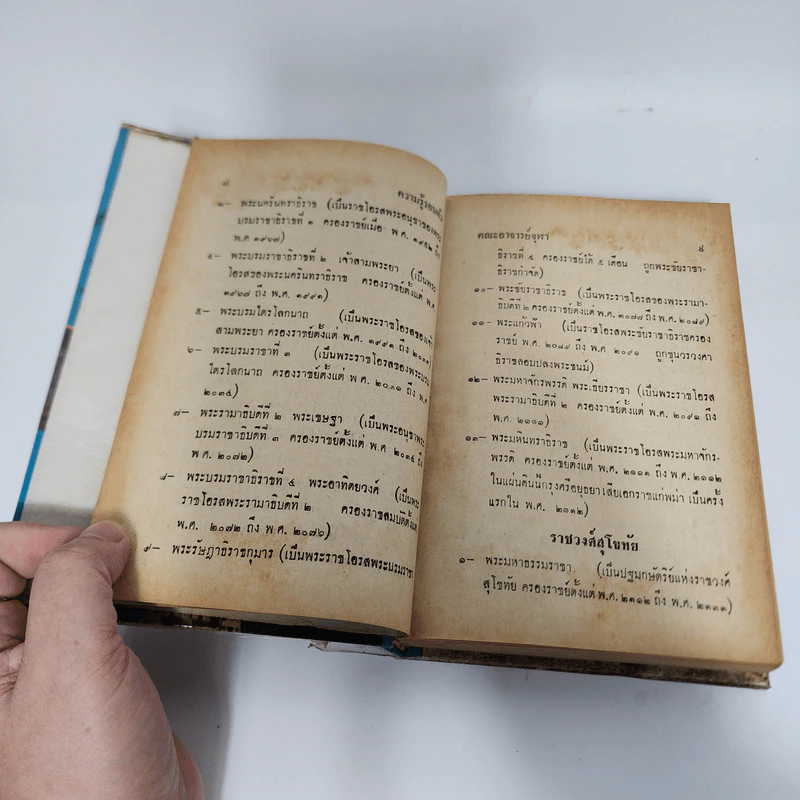 ๘
ความรู้รอบตัว
๓- พระนครินทราธิราช (เป็นราชโอรสพระอนุชาของพระ
บรมราชาธิราชที่ ๑ ครองราชย์เมื่อ พ.ศ. ๑๙๕๒ ถึง
พ.ศ ๑๙๖๗)
๔- พระบรมราชาธิราชที่ ๒ เจ้าสามพระยา (เป็นพระ
โอรสของพระนครินทราธิราช ครองราชย์ตั้งแต่ พ.ศ.
๑๙๖๗ ถึง พ.ศ. ๑๙๙๑)
๕- พระบรมไตรโลกนาถ (เป็นพระราชโอรสของเจ้า
สามพระยา ครองราชย์ตั้งแต่ พ.ศ. ๑๙๙๑ ถึง ๒๐๓๑)
๖- พระบรมราชาที่ ๓ (เป็นพระราชโอรสของพระบรม
ไตรโลกนาถ ครองราชย์ตั้งแต่ พ.ศ. ๒๐๓๑ ถึง พ.ศ.
๒๐๓๔)
๗- พระรามาธิบดีที่ ๒ พระเชษฐา (เป็นพระอนุชาพระ
บรมราชาธิบดีที่ ๓ ครองราชย์ตั้งแต่ พ.ศ ๒๐๓๔ ถึง
พ.ศ. ๒๐๗๒)
๘- พระบรมราชาธิราชที่ ๔ พระอาทิตยวงค์ (เป็นพระ
ราชโอรสพระรามาธิบดีที่ ๒ ครองราชสมบัติตั้งแต่
พ.ศ. ๒๐๗๒ ถึง พ.ศ. ๒๐๗๖)
๙- พระรัษฎาธิราชกุมาร (เป็นพระราชโอรสพระบรมราชา
คณะอาจารย์จุฬา
๙
ธิราชที่ ๔ ครองราชย์ได้ ๕ เดือน ถูกพระชัยราชา-
ธิราชกำจัด)
๑๐- พระชัยราชาธิราช (เป็นพระราชโอรสของพระรามา-
ธิบดีที่ ๒ ครองราชย์ตั้งแต่ พ.ศ. ๒๐๗๗ ถึง พ.ศ. ๒๐๘๙)
๑๑- พระแก้วฟ้า (เป็นราชโอรสพระชัยราชาธิราชครอง
ราชย์ พ.ศ. ๒๐๘๙ ถึง พ.ศ. ๒๐๙๑ ถูกขุนวรวงศา
ธิราชลอบปลงพระชนม์)
๑๒- พระมหาจักรพรรดิ พระเธียรราชา (เป็นพระราชโอรส
พระรามาธิบดีที่ ๒ ครองราชย์ตั้งแต่ พ.ศ. ๒๐๙๑ ถึง
พ.ศ. ๒๑๑๑)
๑๓- พระมหินทราธิราช (เป็นพระราชโอรสพระมหาจักร-
พรรดิ ครองราชย์ตั้งแต่ พ.ศ. ๒๑๑๑ ถึง พ.ศ. ๒๑๑๒
ในแผ่นดินนี้กรุงศรีอยุธยาเสียเอกราชแก่พม่า เป็นครั้ง
แรกใน พ.ศ. ๒๑๑๒)
ราชวงศ์สุโขทัย
๑- พระมหาธรรมราชา (เป็นปฐมกษัตริย์แห่งราชวงศ์
สุโขทัย ครองราชย์ตั้งแต่ พ.ศ. ๒๑๑๒ ถึง พ.ศ. ๒๑๓๓)